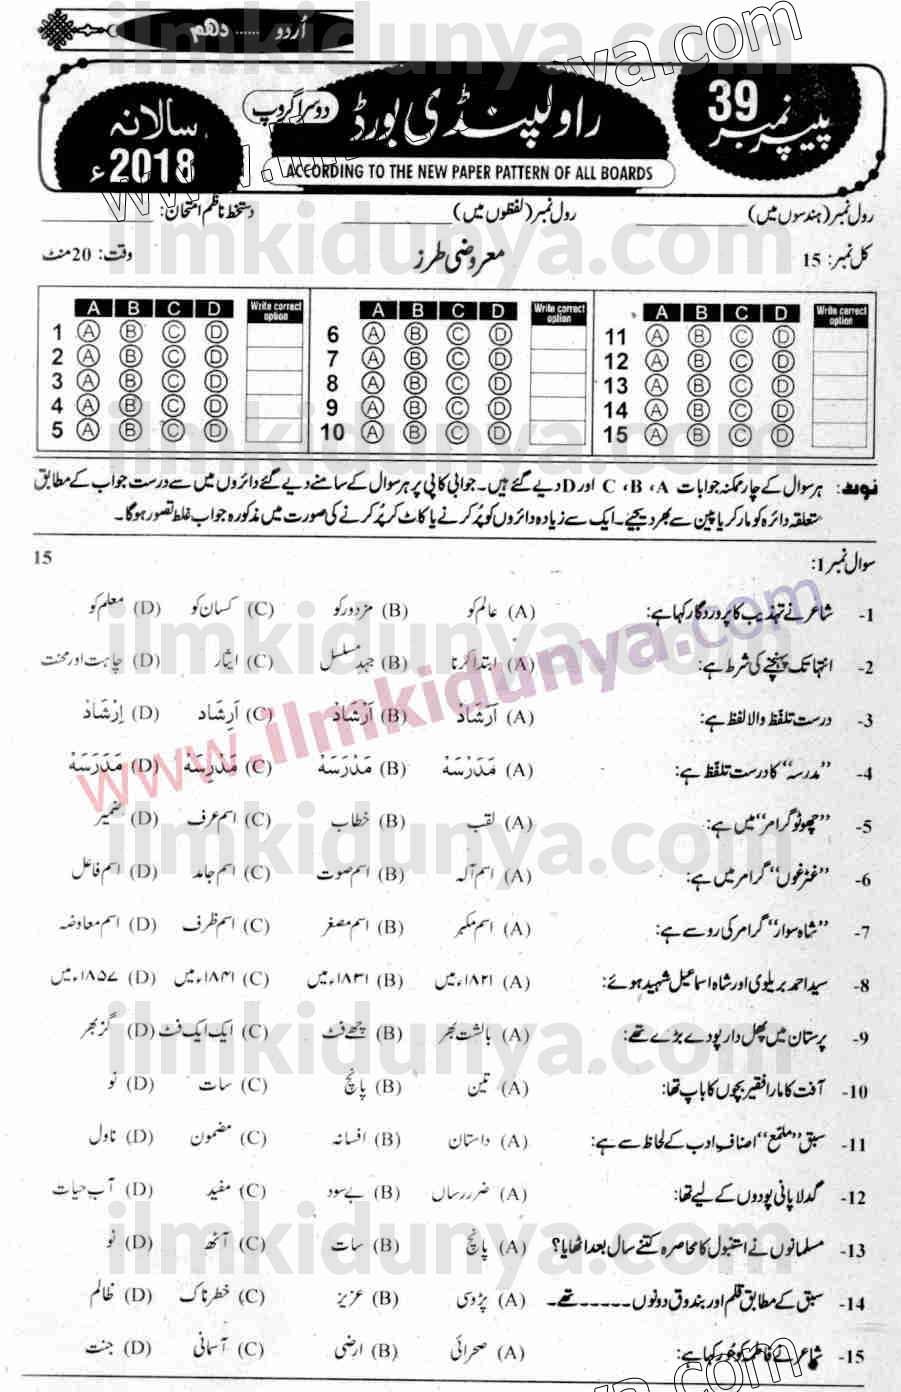 اُردو ...... دہم
پیپر نمبر 39
راولپنڈی بورڈ
دوسرا گروپ
سالانہ 2018ء
ACCORDING TO THE NEW PAPER PATTERN OF ALL BOARDS
رول نمبر (ہندسوں میں) ____________ رول نمبر (لفظوں میں) ____________ دستخط ناظم امتحان: ____________
کل نمبر: 15 معروضی طرز وقت: 20 منٹ
A B C D Write correct option A B C D Write correct option A B C D Write correct option
1 A B C D 6 A B C D 11 A B C D
2 A B C D 7 A B C D 12 A B C D
3 A B C D 8 A B C D 13 A B C D
4 A B C D 9 A B C D 14 A B C D
5 A B C D 10 A B C D 15 A B C D
نوٹ: ہر سوال کے چار ممکنہ جوابات A، B، C اور D دیے گئے ہیں۔ جوابی کاپی پر ہر سوال کے سامنے دیے گئے دائروں میں سے درست جواب کے مطابق
متعلقہ دائرہ کو مارکر یا پین سے بھر دیجیے۔ ایک سے زیادہ دائروں کو پُر کرنے یا کاٹ کر پُر کرنے کی صورت میں مذکورہ جواب غلط تصور ہوگا۔
سوال نمبر 1: 15
1- شاعر نے تہذیب کا پروردگار کہا ہے: (A) عالم کو (B) مزدور کو (C) کسان کو (D) معلم کو
2- انتہا تک پہنچنے کی شرط ہے: (A) ابتدا کرنا (B) جہدِ مسلسل (C) ایثار (D) چاہت اور محنت
3- درست تلفّظ والا لفظ ہے: (A) اَرَشَادْ (B) اَرْشَادْ (C) اَرِشَاد (D) اِرْشَادْ
4- "مدرسہ" کا درست تلفّظ ہے: (A) مَدَرْسَہْ (B) مَدْرَسَہْ (C) مَدْرِسَہْ (D) مَدَرَسَہْ
5- "چھوٹو گرامر" میں ہے: (A) لقب (B) خطاب (C) اسم عرف (D) ضمیر
6- "غٹرغوں" گرامر میں ہے: (A) اسم آلہ (B) اسم صوت (C) اسم جامد (D) اسم فاعل
7- "شاہ سوار" گرامر کی رو سے ہے: (A) اسم مکبر (B) اسم مصغر (C) اسم ظرف (D) اسم معاوضہ
8- سید احمد بریلوی اور شاہ اسماعیل شہید ہوئے: (A) ۱۸۲۱ء میں (B) ۱۸۳۱ء میں (C) ۱۸۴۱ء میں (D) ۱۸۵۷ء میں
9- پرستان میں پھل دار پودے بڑے تھے: (A) بالشت بھر (B) چھے فٹ (C) ایک ایک فٹ (D) گز بھر
10- آفت کا مارا فقیر بچوں کا باپ تھا: (A) تین (B) پانچ (C) سات (D) نو
11- سبق "ملمع" اصنافِ ادب کے لحاظ سے ہے: (A) داستان (B) افسانہ (C) مضمون (D) ناول
12- گدلا پانی پودوں کے لیے تھا: (A) ضرر رساں (B) بے سود (C) مفید (D) آب حیات
13- مسلمانوں نے استنبول کا محاصرہ کتنے سال بعد اٹھایا؟ (A) پانچ (B) سات (C) آٹھ (D) نو
14- سبق کے مطابق قلم اور بندوق دونوں ------ تھے۔ (A) پڑوسی (B) عزیز (C) خطرناک (D) ظالم
15- شاعر نے فاطمہ کو حُور کہا ہے: (A) صحرائی (B) ارضی (C) آسمانی (D) جنت
www.ilmkidunya.com